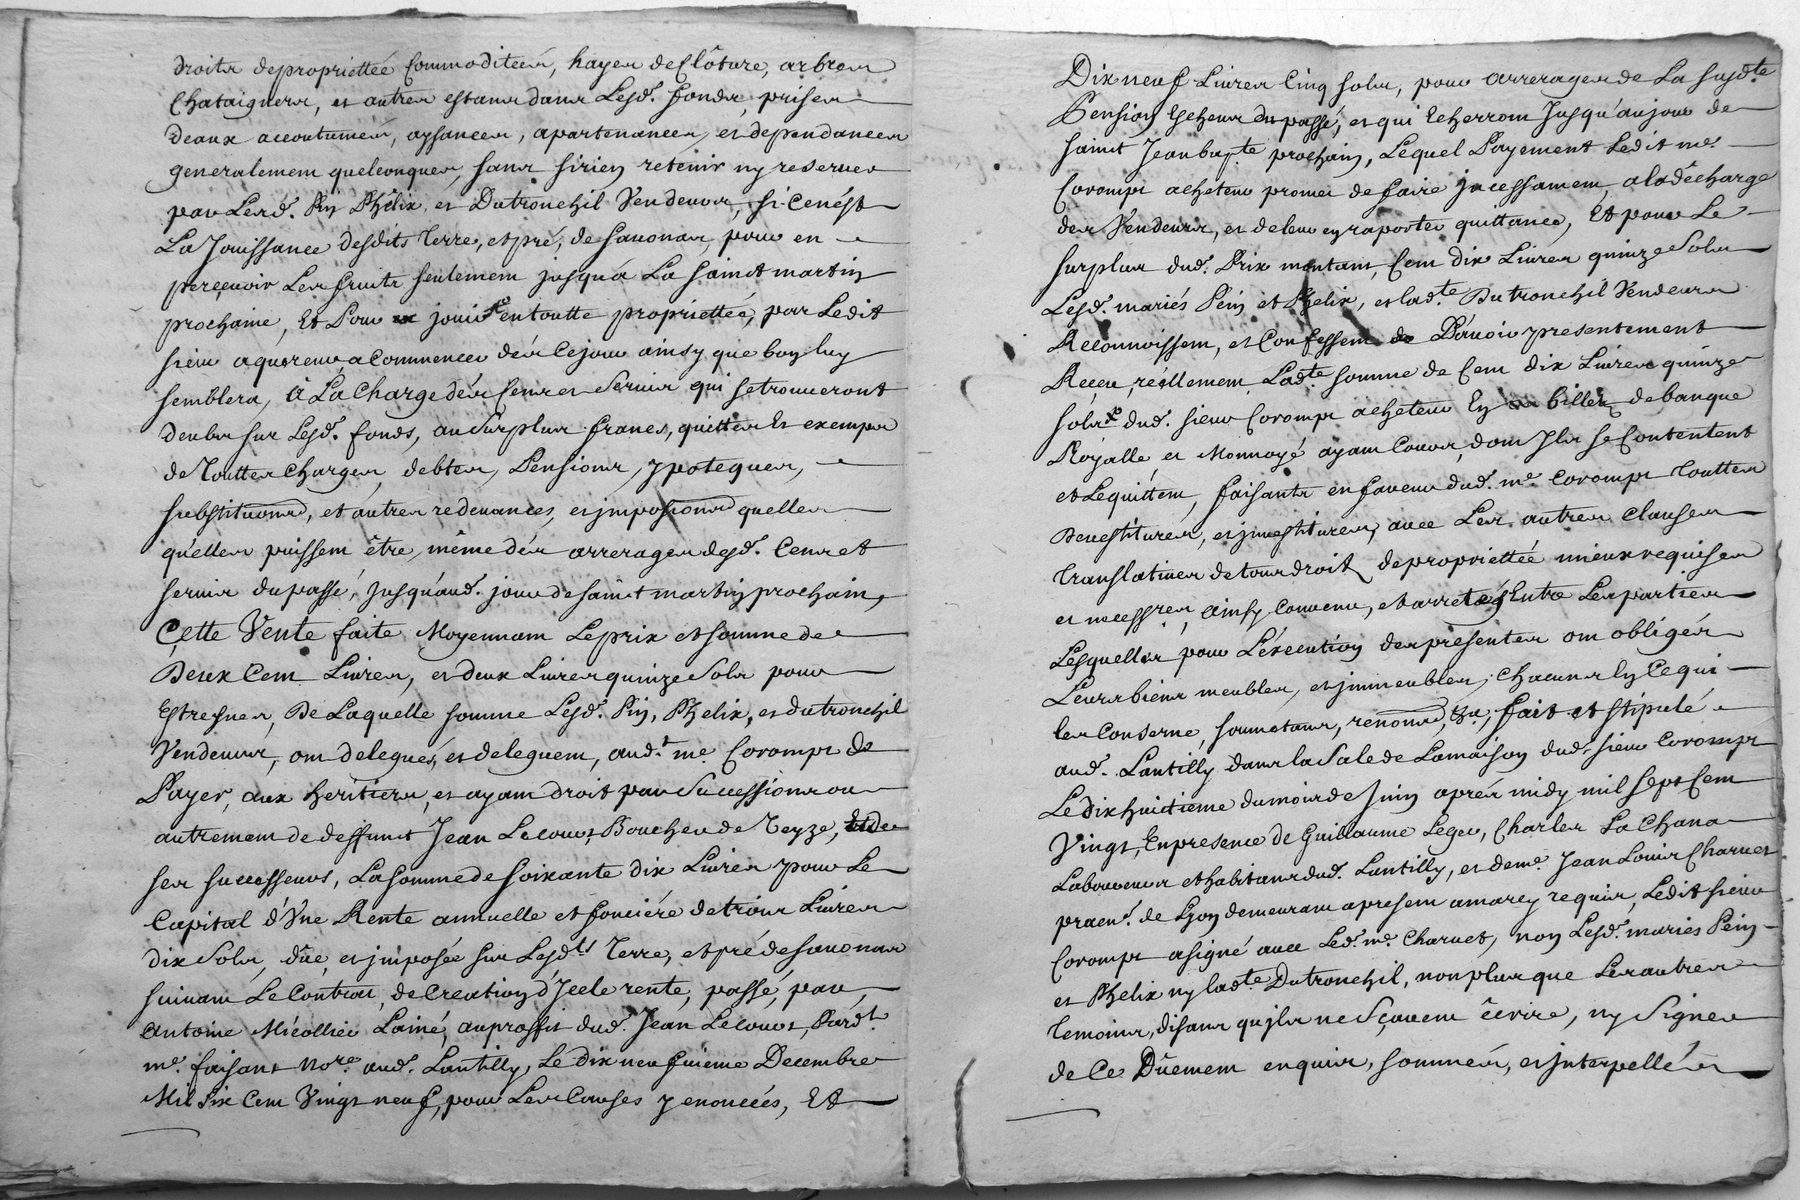 droits depropriettée Commoditeés, hayes deClôture, arbres
Chataigners, et autres estans dans Lesd. fonds, prises
deaux accoutumeés, aysances, apartenances, et dependances
generalement quelconques, sans sirien retenir ny reserver
par Lesd. Pin Phélix, et Dutronchil Vendeurs, si cenést
La Jouissance desdits Terre, et pré, de savonas, pour en
perçevoir Les fruits seulement jusqu'á La saint martin
prochaine, Et Pour jouir entoutte propriettée, par Ledit
sieur aquereur, a Commencer dés Cejour ainsy que bon luy
semblera, à La Charge dés Cens et Servis qui setrouveront
deubs sur Lesd. fonds, au Surplus francs, quittes Et exemps
de Touttes charges, debtes, Pensions, ypoteques,
substitutions, et autres redevances, et impositions quelles
qu'elles puissent être, même dés arrerages desd. Cens et
servis dupassé, Jusqu'aud. jour de saint martin prochain,
Cette Vente faite Moyennant Leprix et somme de
Deux Cent Livres, et deux Livres quinze Sols pour
Estresnes, De Laquelle somme Lesd. Pin, Phelix, et dutronchil
Vendeurs, ont delegués, et deleguent, aud.t me. Corompt de
Payer, aux heritiers, et ayant droit par Successions ou
autrement de deffunct Jean Lecourt Boucher de Teyze, Et de
ses successeurs, La somme de soixante dix Livres pour Le
Capital d'Vne Rente annuelle et fonciére detrois Livres
dix Sols, dûe, et imposée sur Lesd.ts Terre, et pré de savonas
suivant Le Contrat, de Creation d'Jcele rente, passé, par
Antoine Micollier Lainé, au proffit dud. Jean Lecourt, Pard.t
me. faisant No.re aud. Lantilly, Le dix neufvieme Decembre
Mil Six Cent Vingt neuf, pour Les Causes y enoncées, Et
Dix neuf Livres Cinq sols, pour arrerages de La susd.te
Pension Echeus dupassé, et qui Echerront Jusqu'aujour de
saint Jean bap.te prochain, Lequel Payement Ledit me.
Corompt acheteur promet de faire incessament, a la décharge
des Vendeurs, et de leur en raporter quittance, Et pour Le
surplus dud. Prix montant, Cent dix Livres quinze Sols
Lesd. mariés Pein et Phelix, et lad.te Dutronchil Vendeurs
Reconnoissent, et Confessent D'avoir presentement
Reçeu, réellement Lad.te somme de Cent dix Livres quinze
sols dud. sieur Corompt acheteur En billets de banque
Royalle et Monnoyé ayant Cours, dont Jls se Contentent
et Lequittent, faisants en faveur dud. me. Corompt Touttes
Devestitures, et investitures, avec Les autres Clauses
Translatives de tous droits depropriettée mieux requises
et necess.res, ainsy Convenu, et arretés Entre Les parties
Lesquelles pour L'éxecution des presentes ont obligées
Leurs biens meubles, et immeubles, chacuns En Ce qui
les Conserne, soumetans, renoncans, &a, fait et stipulé
aud. Lantilly dans la Sale de Lamaison dud. sieur Corompt
Le dix huitieme dumois de Juin aprés midy mil sept Cent
Vingt, En presence de Guillaume Leger, Charles La Chana
Laboureurs et habitans dud. Lantilly, et de me. Jean Louis Charvet
pracn.t de Lyon demeurant a present amarcy requis, Ledit sieur
Corompt a signé avec Led. me. Charvet, non Lesd. mariés Pein
et Phelix ny lad.te Dutronchil, non plus que Les autres
Temoins, disans qu'ils ne Sçavent Ecrire, ny Signer
de Ce Dûement enquis, sommés, et interpellés